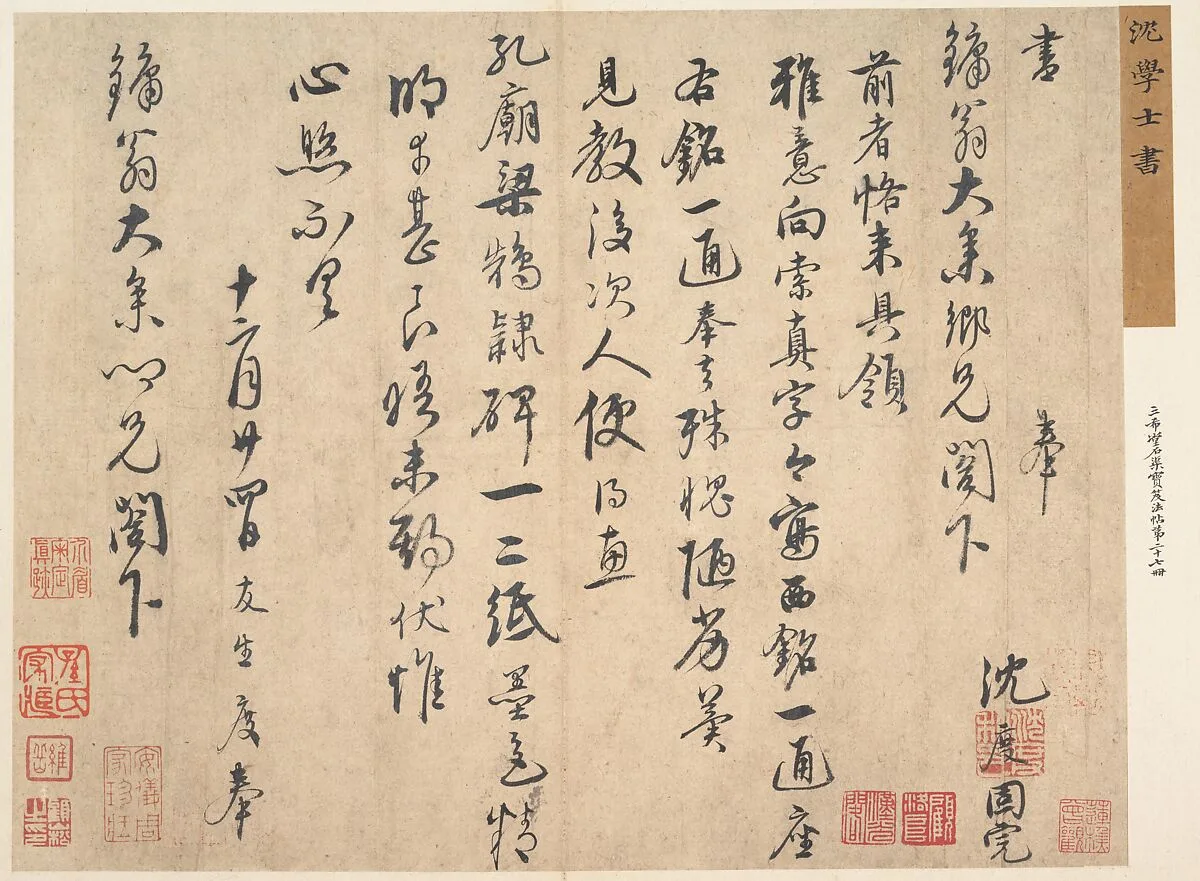 沈學士書
三希堂石渠寶笈法帖第二十七冊
書　奉
鏞翁大參鄉兄閣下
沈度固完
前者恪來具領
雅意向索真字今寫西銘一通座
右銘一通奉去殊愧陋劣冀
見教後次人便得惠
孔廟梁鵠隸碑一二紙墨色精
明幸甚良晤未期伏惟
心照不具
十二月廿四日友生度奉
鏞翁大參心兄閣下
安儀周家珍藏